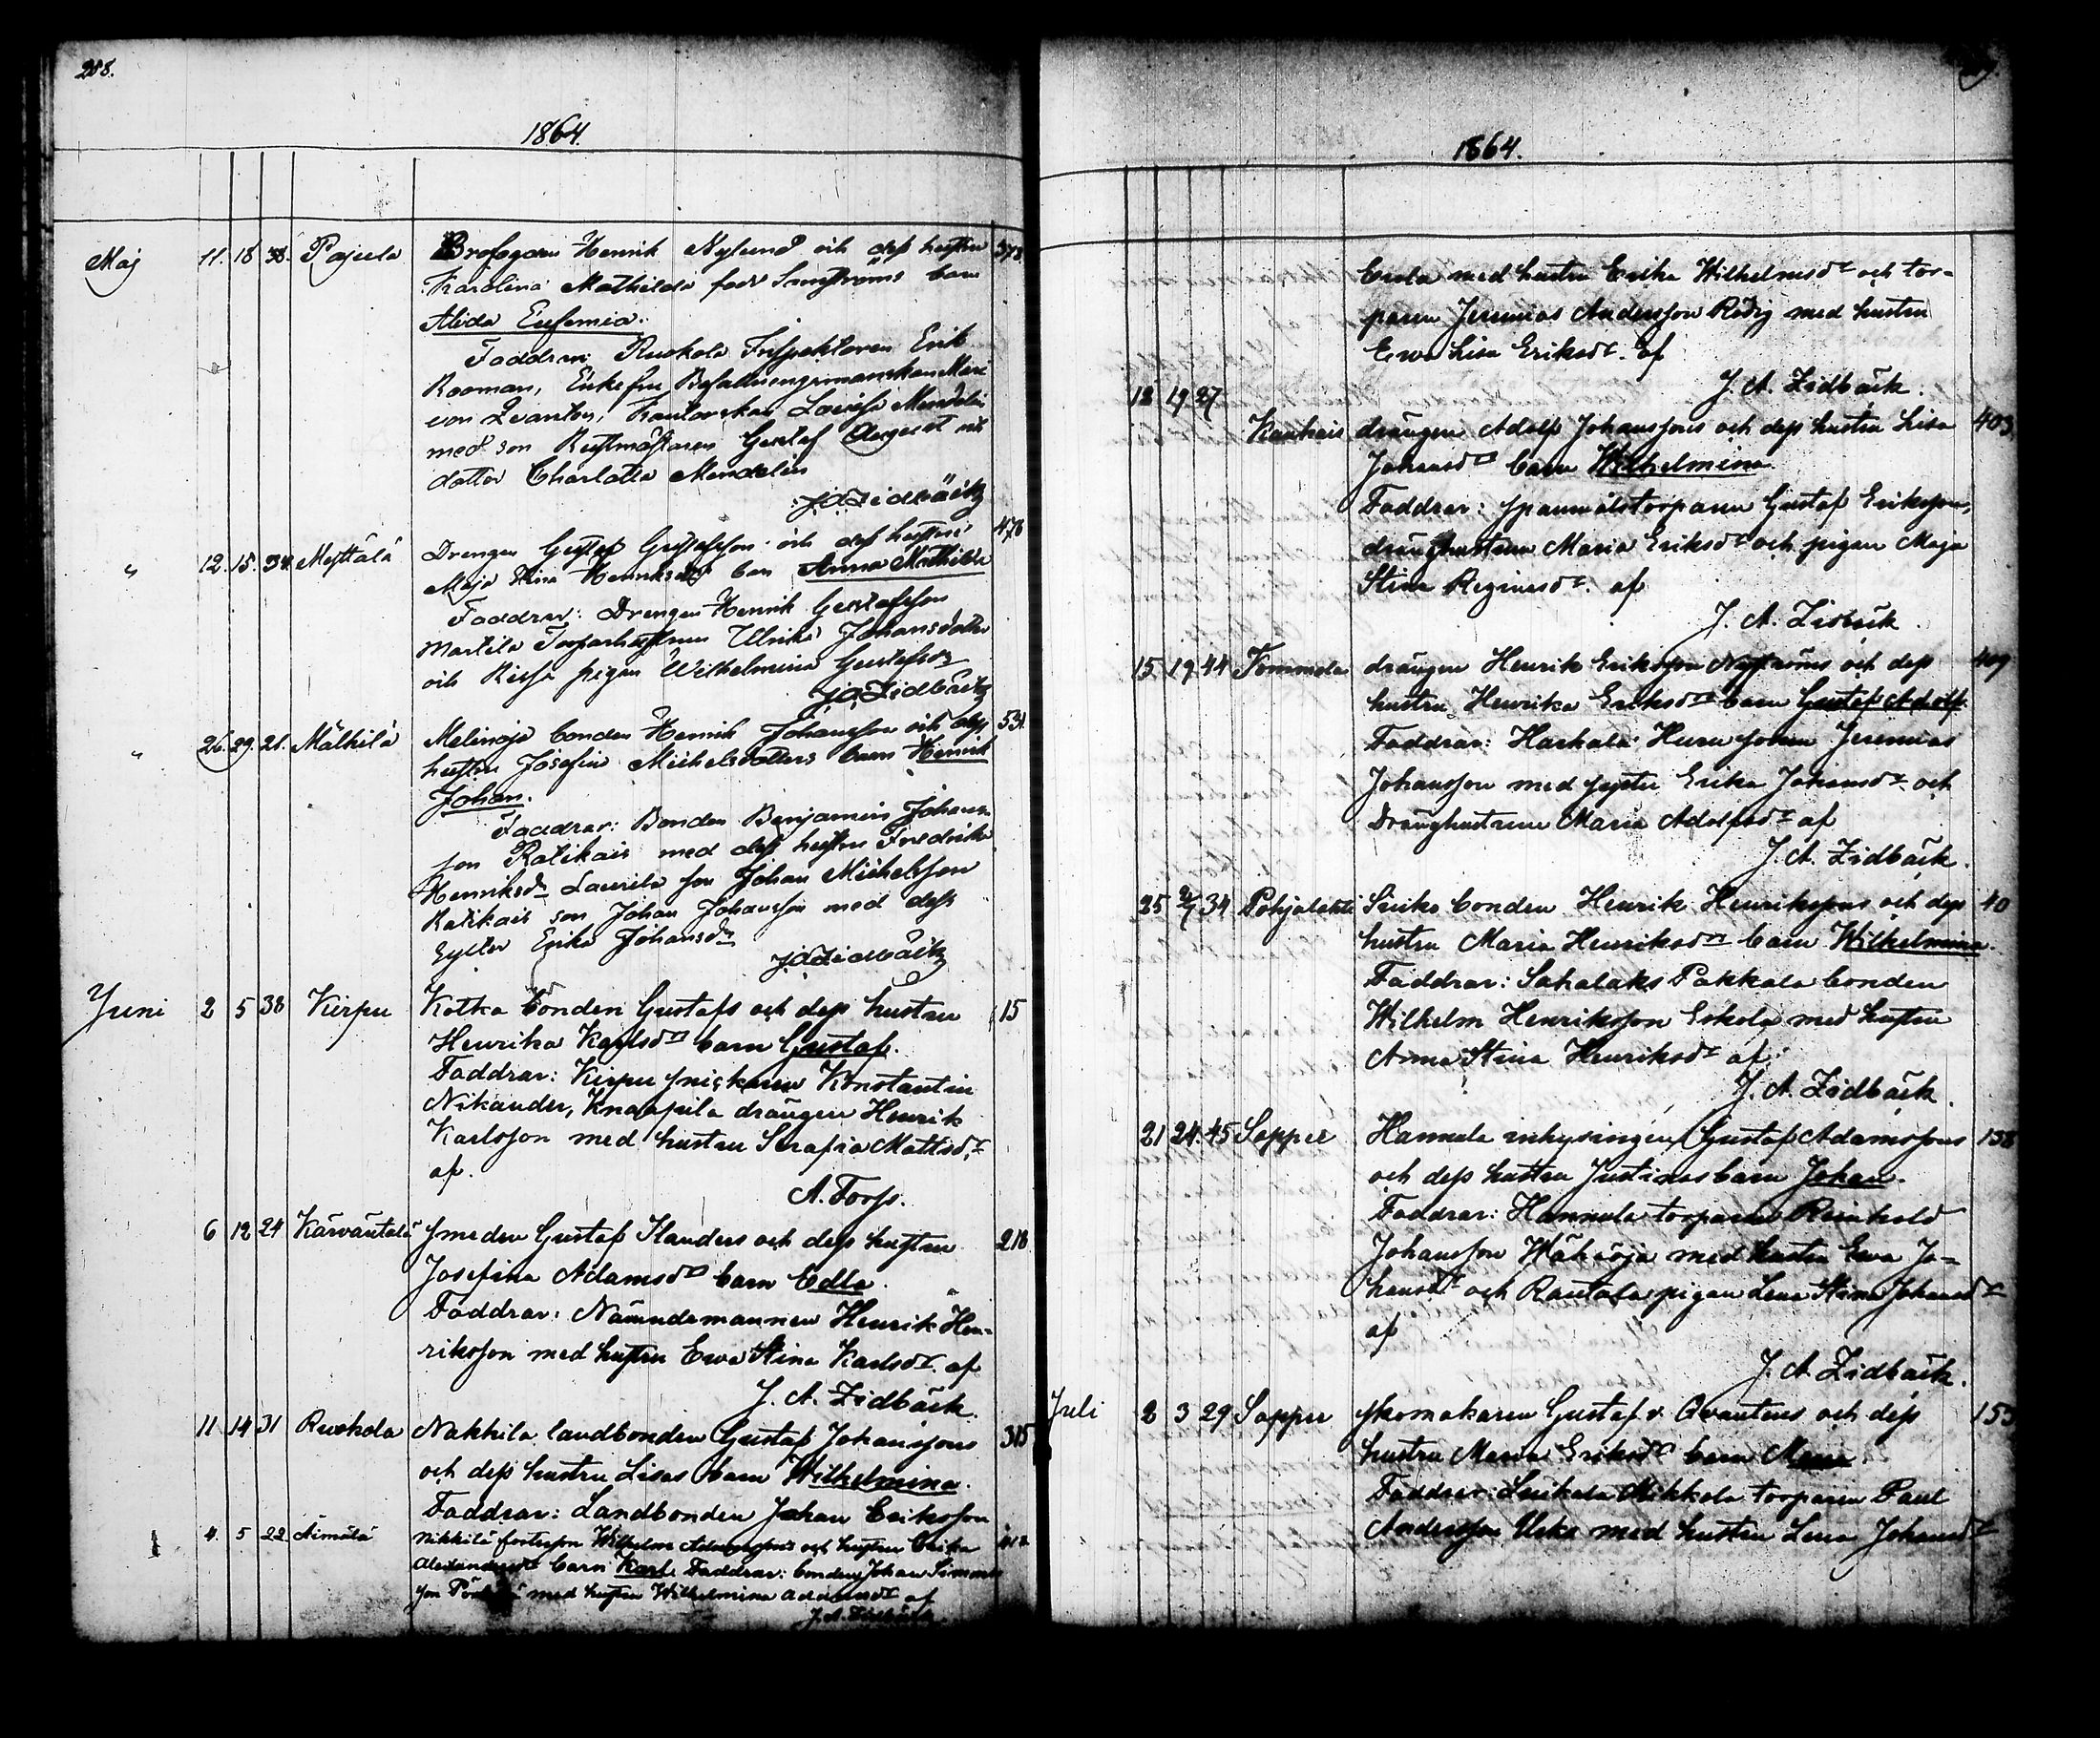 288.
1864.
Maj 11. 18 38. Pajula Brofogden Henrik Nylund och dess hustru 378
Karolina Mathilda född barn
Alida Eufemia.
Faddrar: Ruskola Inspektoren Erik
Rooman, Enkefru Befallningsmanskan Mari
von Qvanten, Kantorskan Lovisa Mendelin
med son Rustmästaren Gustaf August och
dotter Charlotta Mendelin
J A Zidbäck
" 12. 15. 34. Myttälä Drengen Gustaf Gustafsson och dess hustru 476
Maja Stina Henriksdr barn Anna Mathilda
Faddrar: Drengen Henrik Gustafsson
Marttila Torparhustrun Ulrika Johansdotter
och pigan Wilhelmina Gustafsdr
J A Zidbäck
" 26. 29. 21. Mälkilä Melinoja bonden Henrik Johansson och dess 531.
hustru Josefina Michelsdotters barn Henrik
Johan.
Faddrar: Bonden Benjamin Johans-
son Ratikais med dess hustru Fredrika
Henriksdr Laurila son Johan Michelsson
Ratikais son Johan Johansson med dess
syster Erika Johansdr
J A Zidbäck
Juni 2 5 38 Kirpu Kotka bonden Gustafs och dess hustru 15
Henrika Karlsdrs barn Gustaf.
Faddrar: Kirpu snickaren Konstantin
Nikander, Knaapila drängen Henrik
Karlsson med hustru Serafia Mattsdr
af.
A. Forss.
6 12 24 Karvantala smeden Gustaf Ilanders och dess hustru 216
Josefina Adamsdrs barn Edla.
Faddrar: Nämndemannen Henrik Hen-
riksson med hustru Ewa Stina Karlsdr af
J. A. Zidbäck.
11 14 31 Ruskola Nakkila landbonden Gustaf Johanssons 315
och dess hustru Lisas barn Wilhelmina.
Faddrar: Landbonden Johan Eriksson
4. 5 22 Äimälä Nikkilä Wilhelm Adamssons och hustru Erika
barn Karl. Faddrar: bonden Johan Simons-
son med hustru Wilhelmina Adamsdr af
J. A. Zidbäck
1864.
Erola med hustru Erika Wilhelmsdr och tor-
paren Jeremias Andersson Rödig med hustru
Ewa Lisa Eriksdr. af
J. A. Zidbäck.
12 19 27
Kaukais drängen Adolf Johanssons och dess hustru Lisa 403
Johansdrs barn Wilhelmina
Faddrar: spanmålstorparen Gustaf Eriksson,
dränghustrun Maria Eriksdr och pigan Maja
Stina af
J. A. Zidbäck.
15 19 44 Tommila drängen Henrik Eriksson Nyströms och dess 409
hustru Henrika Eriksdrs barn Gustaf Adolf.
Faddrar: Harhala Huru sonen Jeremias
Johansson med syster Erika Johansdr och
Dränghustrun Maria Adolfsdr af
J. A. Zidbäck.
25 2/7 34 Pohjalahti Seiko bonden Henrik Henrikssons och dess 40
hustru Maria Henriksdrs barn Wilhelmina.
Faddrar: Sahalaks Pakkala bonden
Wilhelm Henriksson Eskola med hustru
Anna Stina Henriksdr af
J. A. Zidbäck.
21 24. 45 Soppee Hannula inhysingen Gustaf Adamssons 158
och dess hustru Justinas barn Johan.
Faddrar: Hannula torparen Reinhold
Johansson Wähäoja med hustru Ewa Jo-
hansdr och Rautala pigan Lena Stina Johansdr
af
J. A. Zidbäck.
Juli 2 3 29 Soppee skomakaren Gustaf v. Qvantens och dess 153
hustru Maria Eriksdrs barn Maria
Faddrar: Liukola Mikkola torparen Paul
Andersson Uska med hustru Lena Johansdr